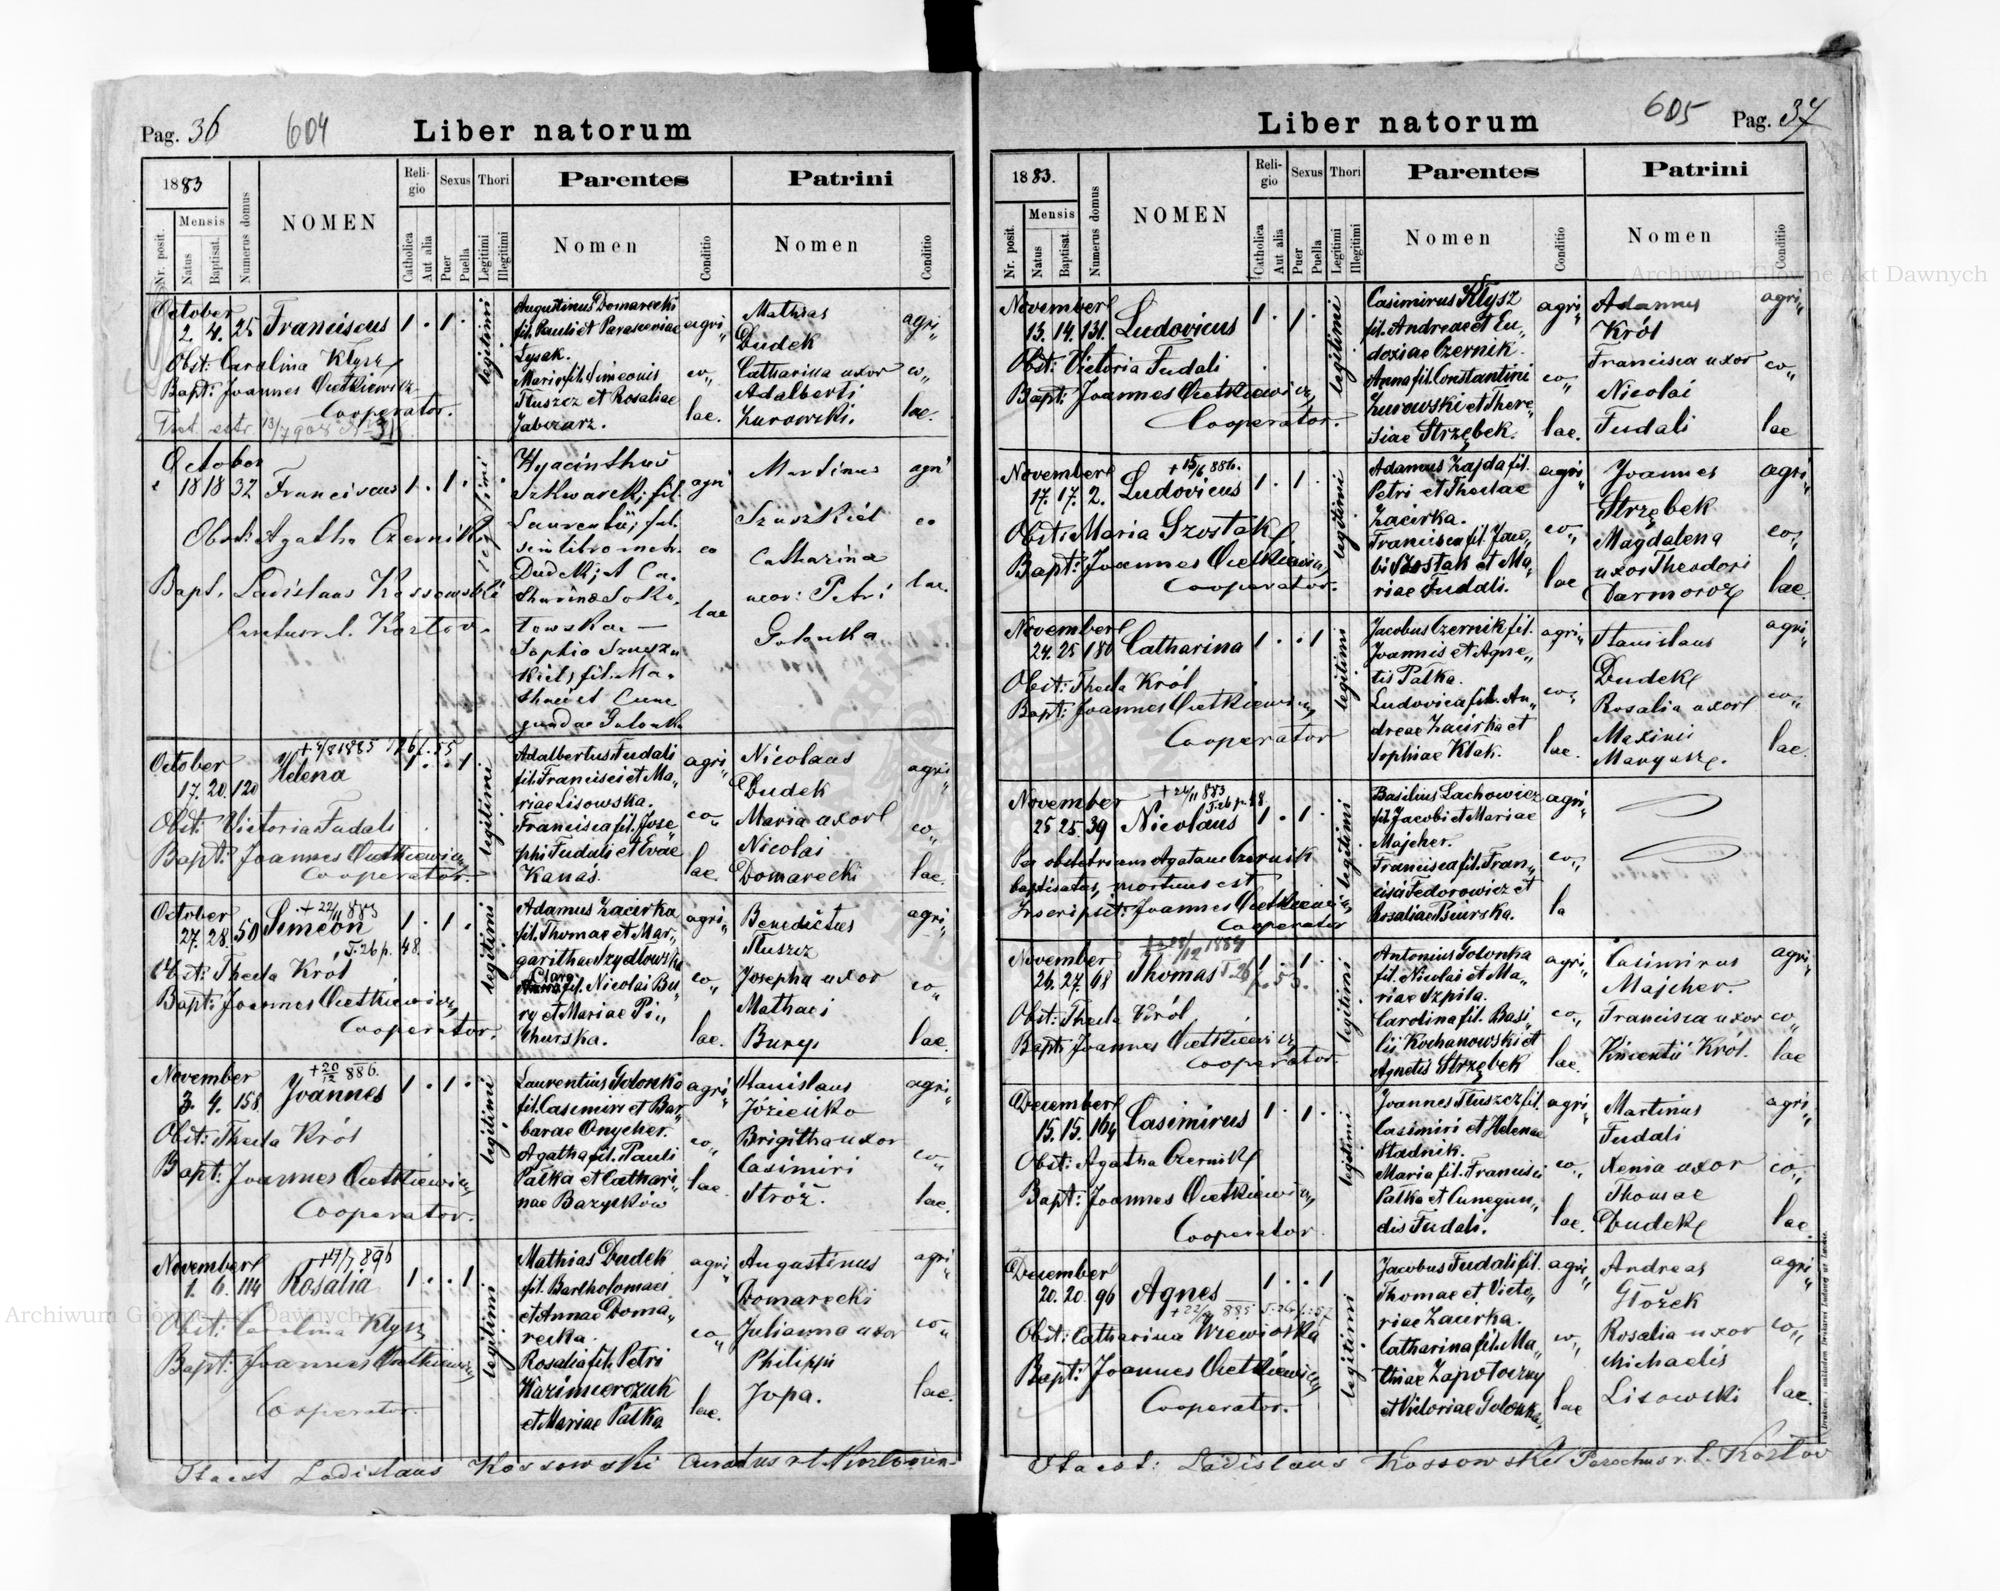 Pag. 36 604 Liber natorum
1883
Nr. posit.
Mensis
Natus
Baptisat.
Numerus domus
NOMEN
Religio
Catholica
Aut alia
Sexus
Puer
Puella
Thori
Legitimi
Illegitimi
Parentes
Nomen
Conditio
Patrini
Nomen
Conditio
October
2. 4. 25 Franciscus 1 . 1 .
Obst: Carolina Kłysz
Bapt: Joannes
Cooperator.
legitimi
Augustinus Domarecki
fil. Pauli et Parasceviae
Łysak.
Maria fil. Simeonis
Tłuszcz et Rosaliae
agri„
co„
lae.
Mathias
Dudek
Catharina uxor
Adalberti
Żurowski.
agri„
co„
lae.
October
18 18 32 Franciscus 1 . 1 .
Obst: Agatha Czernik
Bapt. Ladislaus Kossowski
legitimi
Hyacinthus
fil.
Laurentii, fil.
Dudek; et Ca-
tharinae Soko-
łowska. —
Sophia Szusz-
kiel, fil. Ma-
thaei et Cune
gundae Golonka
agri
co
lae
Martinus
Szuszkiel
Catharina
uxor: Petri
Golonka
agri
co
lae.
+ 7/8 1885 T 26 f. 55
October
17. 20. 120 Helena 1 . . 1
Obst: Victoria Fudali
Bapt: Joannes
Cooperator.
legitimi
Adalbertus Fudali
fil. Francisci et Ma„
riae Lisowska.
Francisca fil. Jose„
phi Fudali et Evae
Kanas.
agri„
co„
lae.
Nicolaus
Dudek
Maria uxor
Nicolai
Domarecki
agri„
co„
lae.
+ 22/11 883
October
27. 28. 50 Simeon 1 . 1 .
T. 26 p. 48.
Obst: Thecla Król
Bapt: Joannes
Cooperator.
legitimi
Adamus Zacirka
fil. Thomae et Mar„
garithae Szydłowska
Clara
fil. Nicolai Bu„
ry et Mariae Pi„
churska.
agri„
co„
lae.
Benedictus
Tłuszcz
Josepha uxor
Mathaei
Bury
agri„
co„
lae.
+ 20/12 886.
November
3. 4. 158 Joannes 1 . 1 .
Obst: Thecla Król
Bapt: Joannes
Cooperator.
legitimi
Laurentius Golonka
fil. Casimiri et Bar„
barae Onycher.
Agatha fil. Pauli
Pałka et Cathari„
nae Bazyłków
agri„
co„
lae.
Stanislaus
Józieńko
Brigitha uxor
Casimiri
Stróż.
agri„
co„
lae.
+ 17/7 896
November
1. 6. 114 Rosalia 1 . . 1
Obst: Carolina Kłysz
Bapt: Joannes
Cooperator.
legitimi
Mathias Dudek
fil. Bartholomaei
et Annae Doma„
recka.
Rosalia fil. Petri
Kazimierczuk
et Mariae Pałka
agri„
co„
lae.
Augustinus
Domarecki
Julianna uxor
Philippi
Jopa.
agri„
co„
lae.
Ita est Ladislaus Kossowski Curatus r. l.
Pag. 37 605 Liber natorum
1883.
Nr. posit.
Mensis
Natus
Baptisat.
Numerus domus
NOMEN
Religio
Catholica
Aut alia
Sexus
Puer
Puella
Thori
Legitimi
Illegitimi
Parentes
Nomen
Conditio
Patrini
Nomen
Conditio
November
13. 14. 131. Ludovicus 1 . 1 .
Obst: Victoria Fudali
Bapt: Joannes
Cooperator.
legitimi
Casimirus Kłysz
fil. Andreae et Eu„
doxiae Czernik.
Anna fil. Constantini
Żurowski et There„
siae Strzębek.
agri„
co„
lae.
Adamus
Król
Francisca uxor
Nicolai
Fudali
agri„
co„
lae
+ 15/6 886.
November
17. 17. 2. Ludovicus 1 . 1 .
Obst: Maria Szostak
Bapt: Joannes
Cooperator.
legitimi
Adamus Zajda fil.
Petri et Theclae
Zacirka.
Francisca fil. Jaco„
bi Szostak et Ma„
riae Fudali.
agri„
co„
lae
Joannes
Strzębek
Magdalena
uxor Theodori
Darmoroz
agri„
co„
lae.
November
24. 25 180 Catharina 1 . . 1
Obst: Thecla Król
Bapt: Joannes
Cooperator
legitimi
Jacobus Czernik fil.
Joannis et Agne„
tis Pałka.
Ludovica fil. An„
dreae Zacirka et
Sophiae Kłak.
agri„
co„
lae.
Stanislaus
Dudek
Rosalia uxor
Maximi
agri„
co„
lae.
+ 26/11 883
T. 26 p. 48.
November
25 25. 39 Nicolaus 1 . 1 .
Per obstetricem Agatam Czernik
baptisatus, mortuus est
Inscripsit: Joannes
Cooperator
legitimi
Basilius Lachowicz
fil. Jacobi et Mariae
Majcher.
Francisca fil. Fran„
cisci Fedorowicz et
Rosaliae Psiurska.
agri„
co„
la
1884
November
26. 27. 68 Thomas 1 . 1 .
T. 26 p. 53.
Obst: Thecla Król
Bapt: Joannes
Cooperator.
legitimi
Antonius Golonka
fil. Nicolai et Ma„
riae Szpila.
Carolina fil. Basi„
lii Kochanowski et
Agnetis Strzębek
agri„
co„
lae.
Casimirus
Majcher.
Francisca uxor
Vincentii Król.
agri„
co„
lae
December
15. 15. 164 Casimirus 1 . 1 .
Obst: Agatha Czernik
Bapt: Joannes
Cooperator.
legitimi
Joannes Tłuszcz fil.
Casimiri et Helenae
Stadnik.
Maria fil. Francisci
Pałka et Cunegun„
dis Fudali.
agri„
co„
lae.
Martinus
Fudali
Xenia uxor
Thomae
Dudek
agri„
co„
lae.
December
20. 20. 96 Agnes 1 . . 1
885 T. 26 f. 57
Obst: Catharina
Bapt: Joannes
Cooperator.
legitimi
Jacobus Fudali fil.
Thomae et Victo„
riae Zacirka.
Catharina fil. Ma„
thiae Zapotoczny
et Victoriae Golonka.
agri„
co„
lae
Andreas
Głożek
Rosalia uxor
Michaelis
Lisowski
agri„
co„
lae.
Ita est: Ladislaus Kossowski Parochus r. l. Koztov
Archiwum Główne Akt Dawnych
Archiwum Główne Akt Dawnych